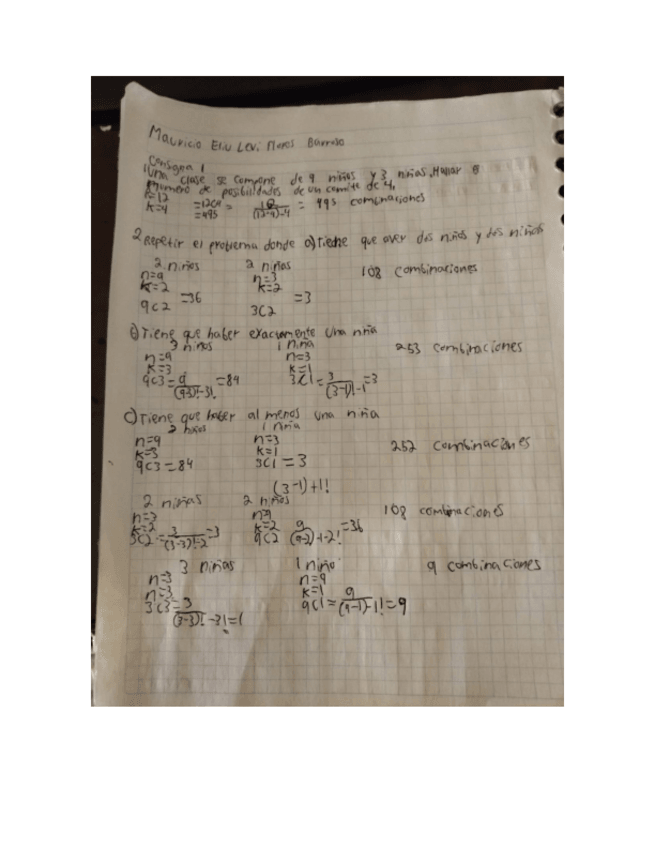 Mauricio Eliu Levi Barroso
Consigna 1
1 Una clase se compone de 9 niños y 3 niñas, Hallar el
numero de posibilidades de un comite de 4.
n=12
k=4
=12C4 =
=495
= 495 combinaciones
2 Repetir el problema donde a) Tiene que aver dos niños y dos niñas
2 niños
n=9
k=2
9C2 =36
2 niñas
n=3
k=2
3C2 =3
108 combinaciones
b) Tiene que haber exactamente una niña
3 niños
n=9
k=3
9C3 = =84
1 niña
n=3
k=1
3C1 = =3
253 combinaciones
c) Tiene que haber al menos una niña
n=9
k=3
9C3 =84
1 niña
n=3
k=1
3C1 = 3
(3-1)+1!
252 combinaciones
2 niñas
n=3
k=2
3C2 = =3
2 niños
n=9
k=2
9C2 =36
108 combinaciones
3 niñas
n=3
n=3
3C3= =1
1 niño
n=9
k=1
9C1 = =9
9 combinaciones